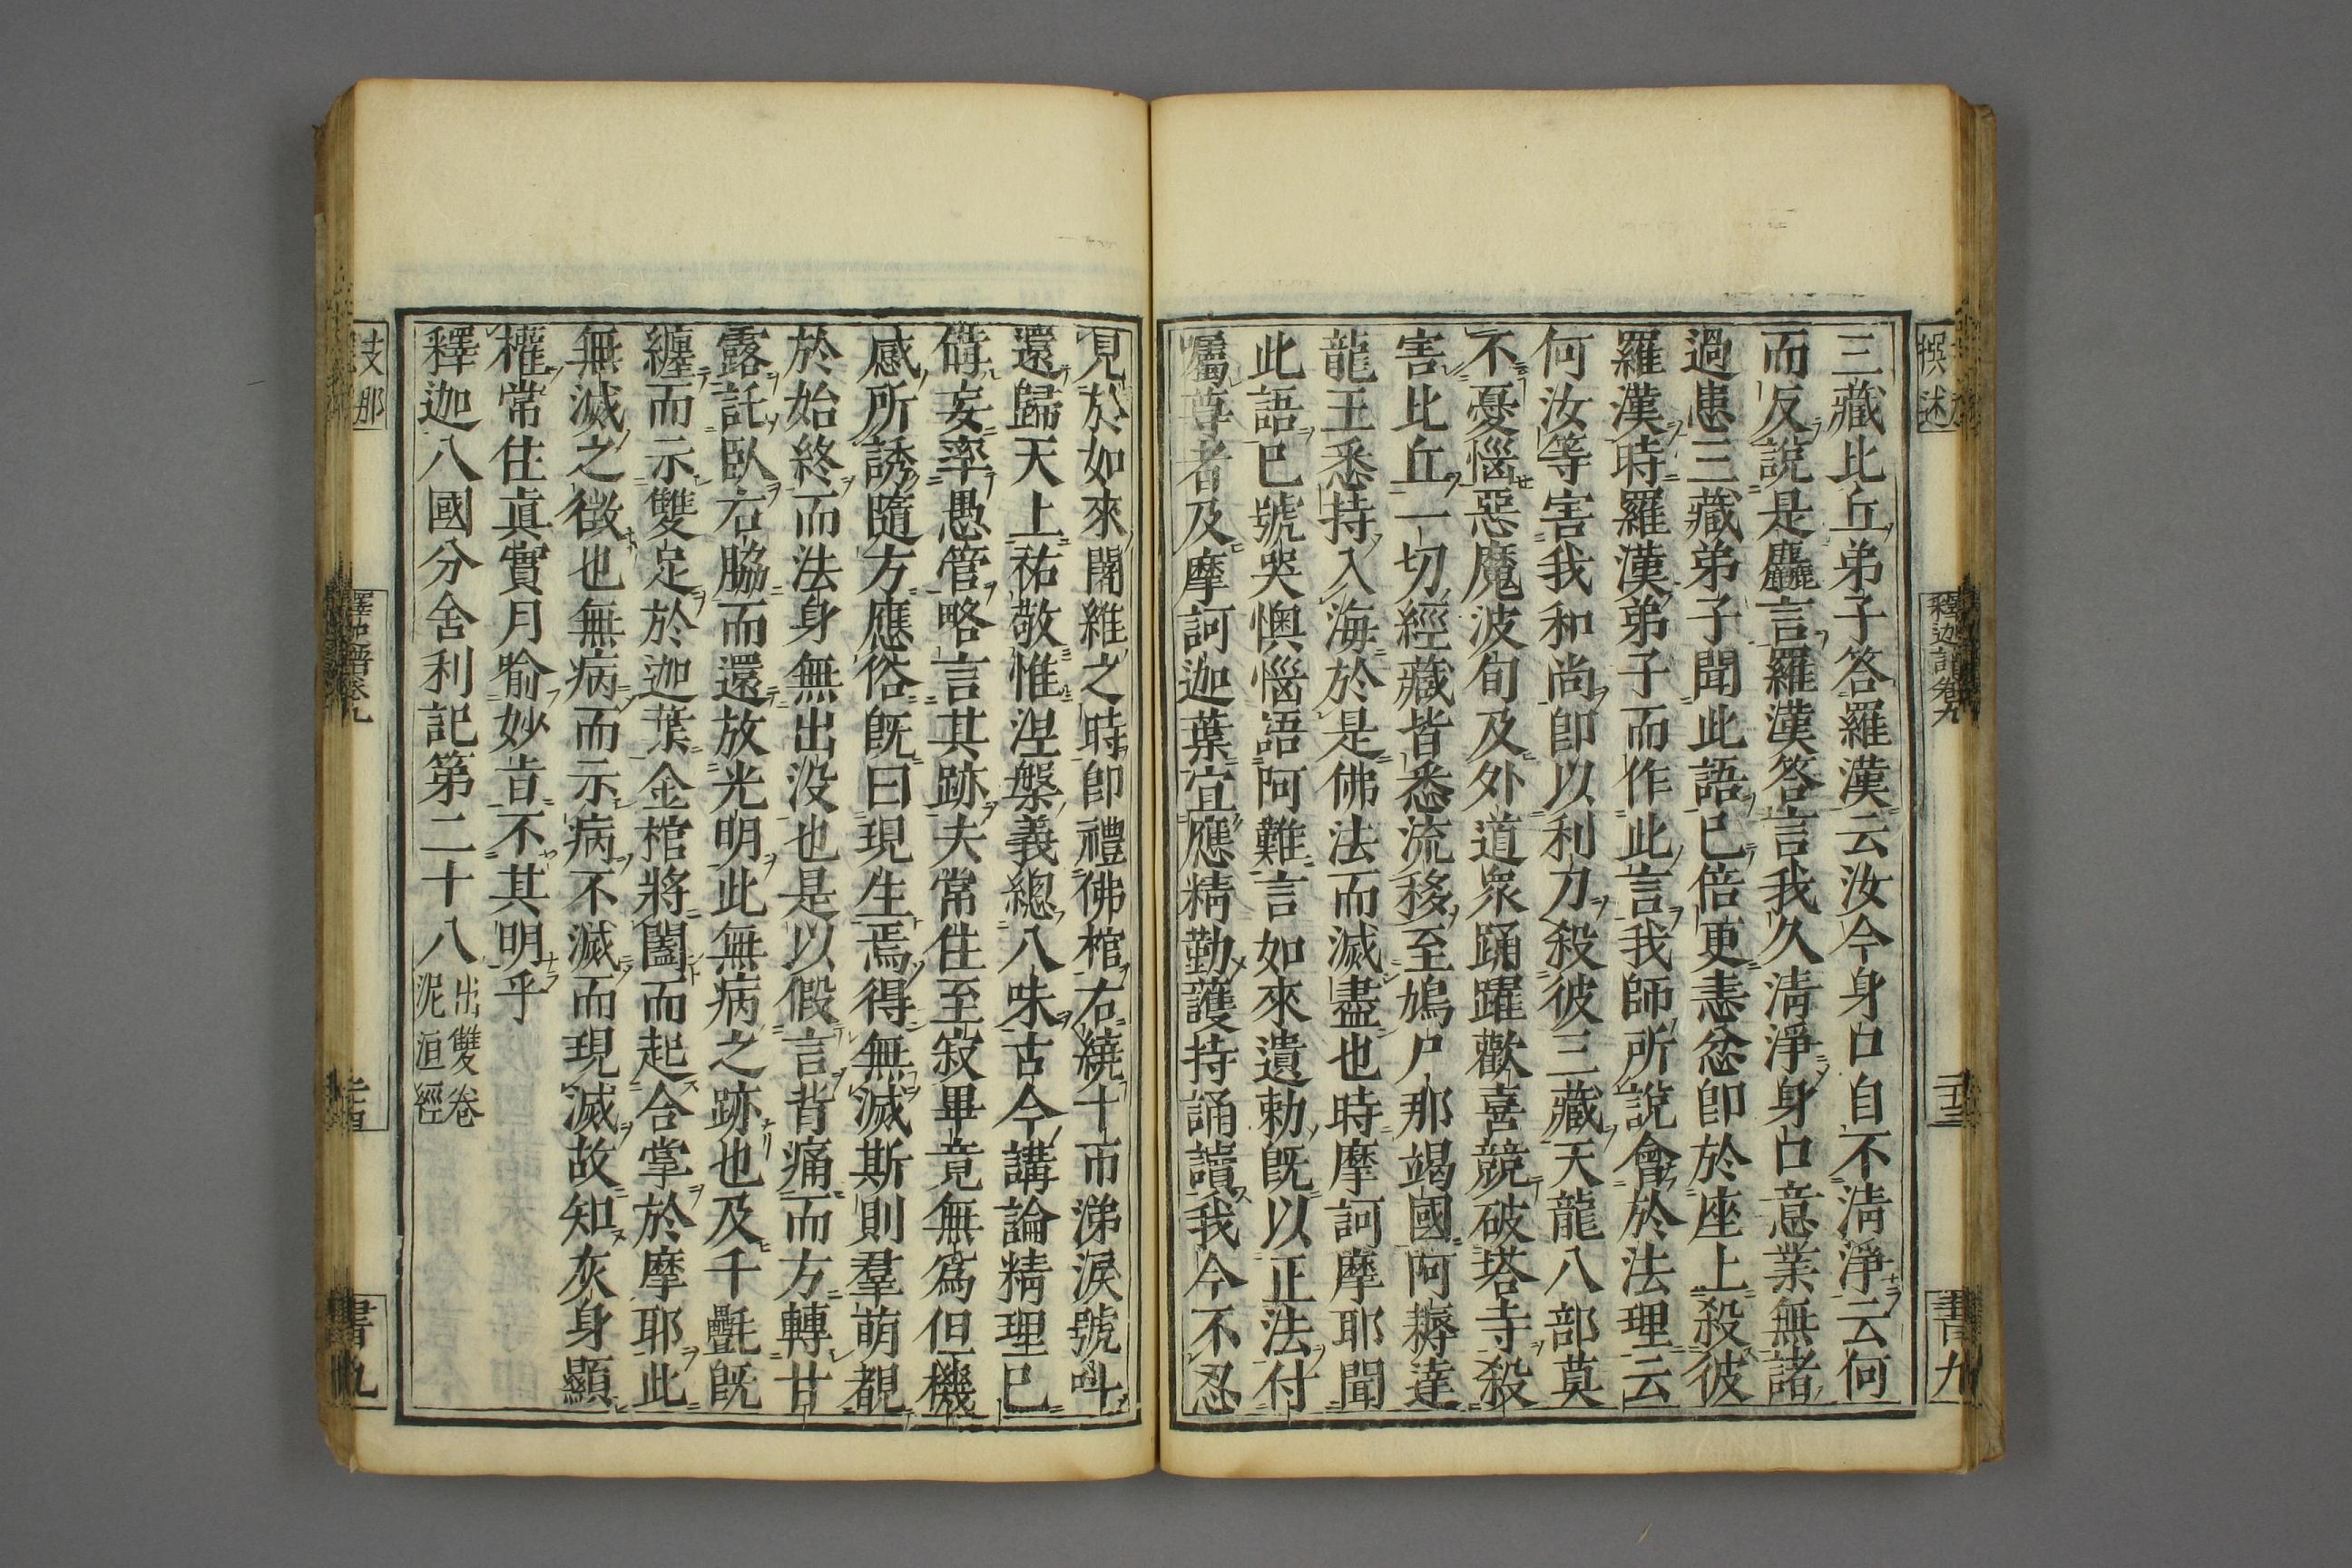 撰述
釋迦譜卷九
二十三
書九
三藏比丘弟子答羅漢云汝今身口自不清淨云何
而反說是麤言羅漢答言我久清淨身口意業無諸
過患三藏弟子聞此語已倍更恚忿即於座上殺彼
羅漢時羅漢弟子而作此言我師所說會於法理云
何汝等害我和尚即以利刀殺彼三藏天龍八部莫
不憂惱惡魔波旬及外道衆踊躍歡喜競破塔寺殺
害比丘一切經藏皆悉流移至鳩尸那竭國阿耨達
龍王悉持入海於是佛法而滅盡也時摩訶摩耶聞
此語已號哭懊惱語阿難言如來遺勅既以正法付
囑尊者及摩訶迦葉宜應精勤護持誦讀我今不忍
見於如來闍維之時即禮佛棺右繞十帀涕淚號叫
還歸天上祐敬惟涅槃義總八味古今講論精理已
構妄率愚管略言其跡夫常住至寂畢竟無爲但機
感所誘隨方應俗既曰現生焉得無滅斯則羣萌覩
於始終而法身無出沒也是以假言背痛而方轉甘
露託臥右脇而還放光明此無病之跡也及千㲲既
纏而示雙足於迦葉金棺將闔而起合掌於摩耶此
無滅之徵也無病而示病不滅而現滅故知灰身顯
權常住真實月喻妙旨不其明乎
釋迦八國分舍利記第二十八
出雙卷
泥洹經
支那
釋迦譜卷九
二十四
書九